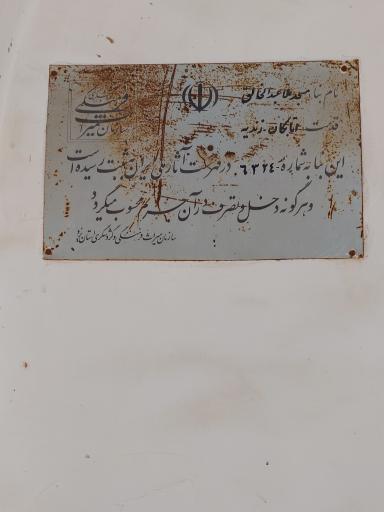 نام بنا: مسجد ملا عبدالخالق
قدمت: اتابکان - زندیه
این بنا به شماره ۶۳۲۴ در فهرست آثار ملی ایران به ثبت رسیده است
و هرگونه دخل و تصرف در آن جرم محسوب میگردد
سازمان میراث فرهنگی و گردشگری استان یزد